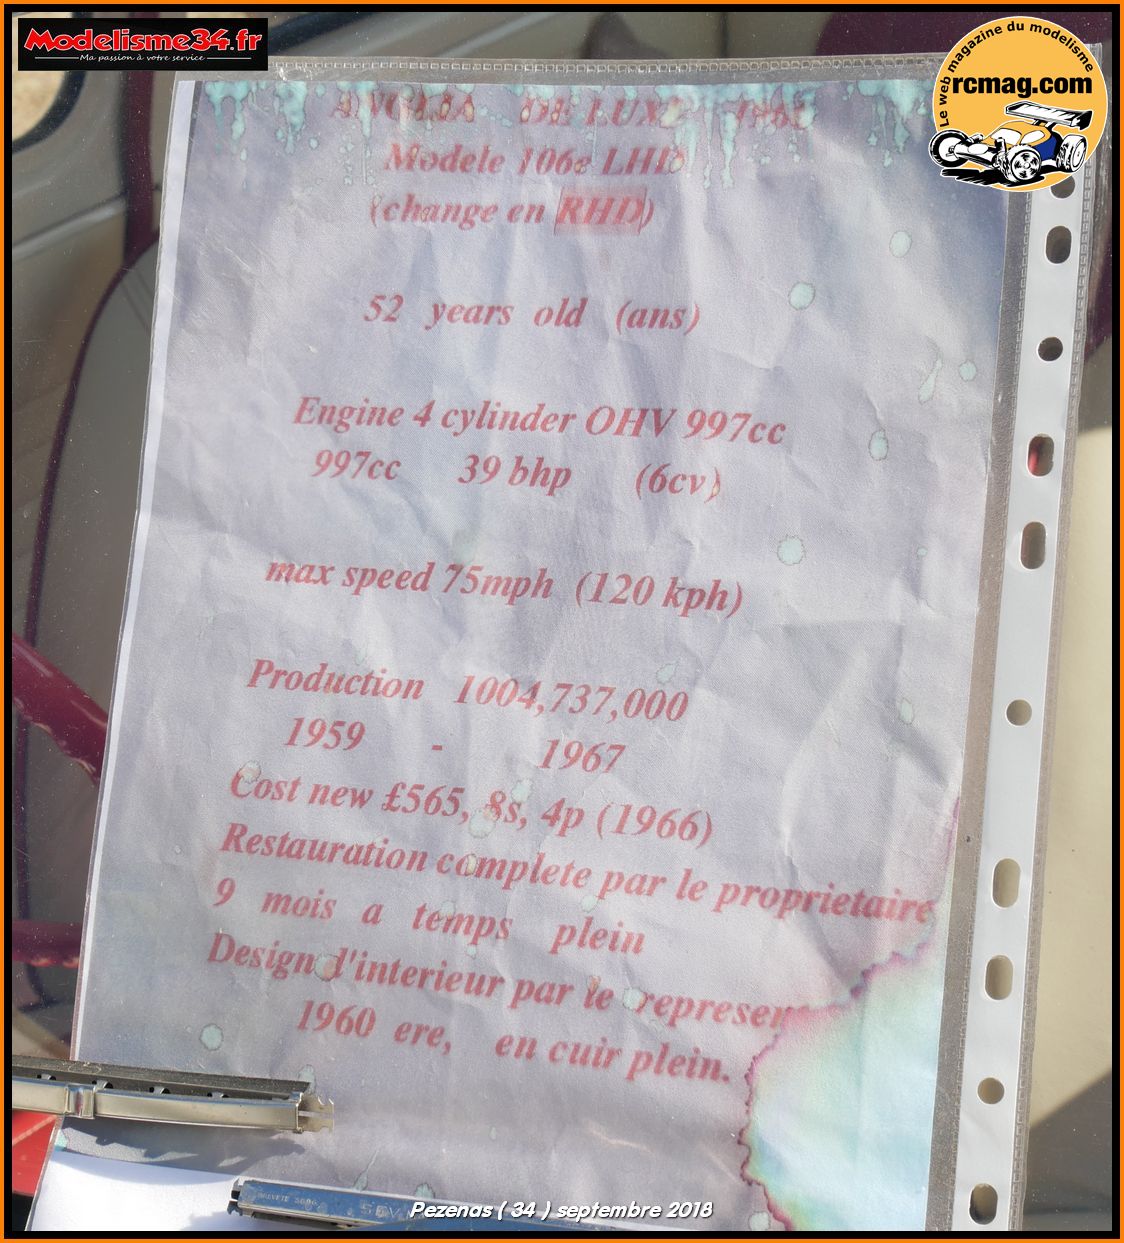 Modelisme34.fr
Ma passion à votre service
Le web magazine du modelisme
rcmag.com
ANGLIA DE LUXE
Modele 106e LHD
(change en RHD)
52 years old (ans)
Engine 4 cylinder OHV 997cc
997cc 39 bhp (6cv)
max speed 75mph (120 kph)
Production 1004,737,000
1959 - 1967
Cost new £565, 8s, 4p (1966)
Restauration complete par le proprietaire
9 mois a temps plein
Design d'interieur par le
1960 ere, en cuir plein.
Pezenas ( 34 ) septembre 2018